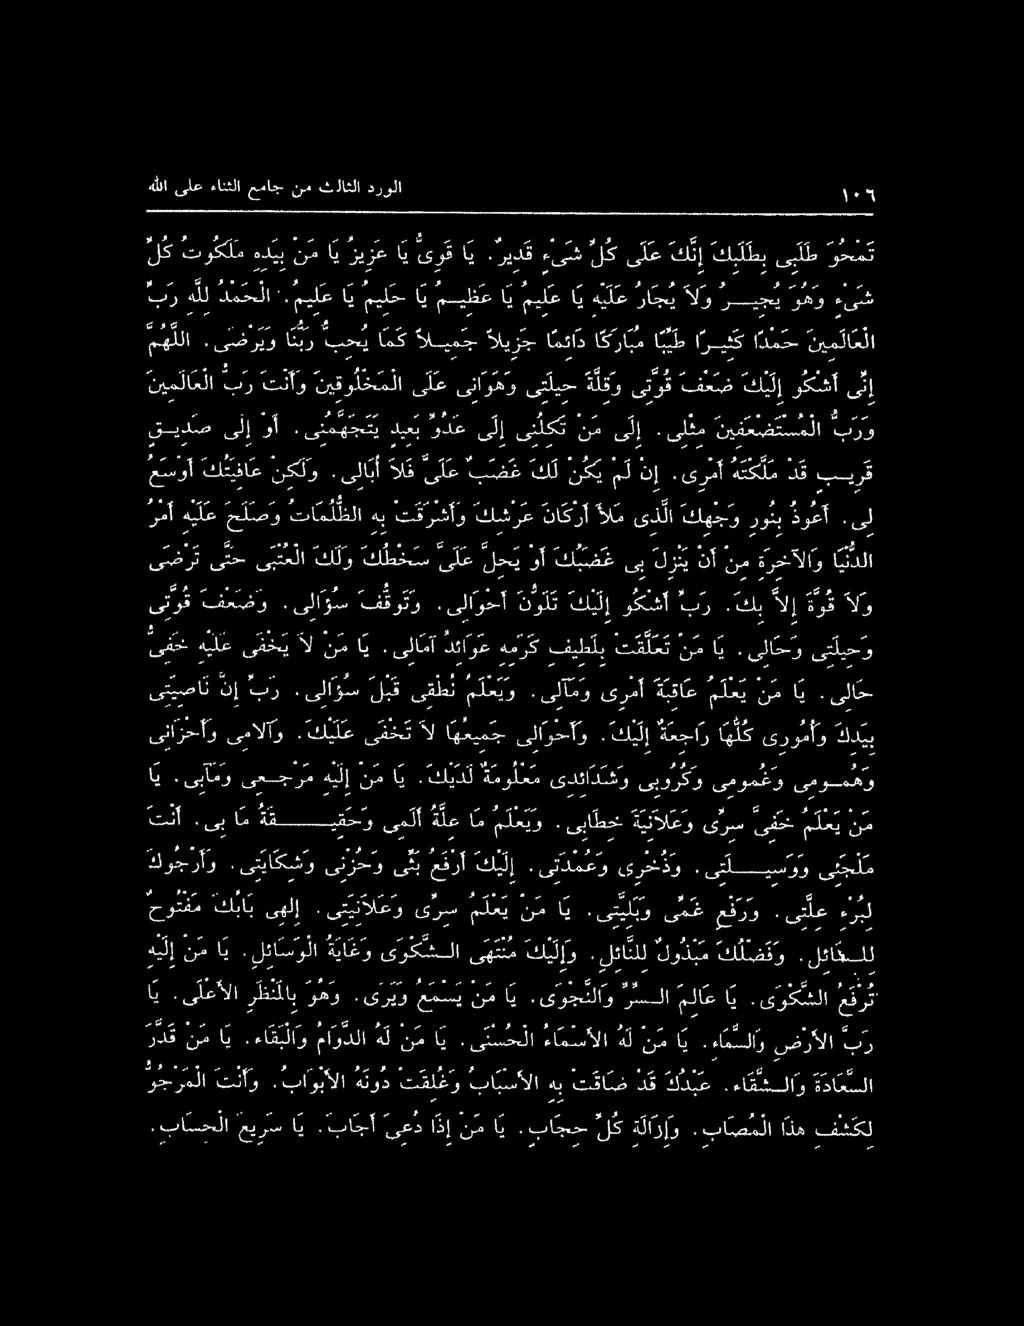 ١٠٦
الورد الثالث من جامع الثناء على الله
تَمْحُوَ طَلَبِى بِطَلَبِكَ إِنَّكَ عَلَى كُلِّ شَىْءٍ قَدِيرٌ. يَا قَوِىُّ يَا عَزِيزُ يَا مَنْ بِيَدِهِ مَلَكُوتُ كُلِّ
شَىْءٍ وَهُوَ يُجِيـــرُ وَلاَ يُجَارُ عَلَيْهِ يَا عَلِيمُ يَا عَظِيـمُ يَا حَلِيمُ يَا عَلِيمُ. الْحَمْدُ لِلَّهِ رَبِّ
الْعَالَمِينَ حَمْدًا كَثِيـرًا طَيِّبًا مُبَارَكًا دَائِمًا جَزِيلاً جَمِيـلاً كَمَا يُحِبُّ رَبُّنَا وَيَرْضَى. اللَّهُمَّ
إِنِّى أَشْكُو إِلَيْكَ ضَعْفَ قُوَّتِى وَقِلَّةَ حِيلَتِى وَهَوَانِى عَلَى الْمَخْلُوقِينَ وَأَنْتَ رَبُّ الْعَالَمِينَ
وَرَبُّ الْمُسْتَضْعَفِينَ مِثْلِى. إِلَى مَنْ تَكِلُنِى إِلَى عَدُوٍّ بَعِيدٍ يَتَجَهَّمُنِى. أَوْ إِلَى صَدِيـقٍ
قَرِيـبٍ قَدْ مَلَّكْتَهُ أَمْرِى. إِنْ لَمْ يَكُنْ لَكَ غَضَبٌ عَلَىَّ فَلاَ أُبَالِى. وَلَكِنْ عَافِيَتُكَ أَوْسَعُ
لِى. أَعُوذُ بِنُورِ وَجْهِكَ الَّذِى مَلأَ أَرْكَانَ عَرْشِكَ وَأَشْرَقَتْ بِهِ الظُّلُمَاتُ وَصَلَحَ عَلَيْهِ أَمْرُ
الدُّنْيَا وَالآخِرَةِ مِنْ أَنْ يَنْزِلَ بِى غَضَبُكَ أَوْ يَحِلَّ عَلَىَّ سَخَطُكَ وَلَكَ الْعُتْبَى حَتَّى تَرْضَى
وَلاَ قُوَّةَ إِلاَّ بِكَ. رَبِّ أَشْكُو إِلَيْكَ تَلَوُّنَ أَحْوَالِى. وَتَوَقُّفَ سُؤَالِى. وَضَعْفَ قُوَّتِى
وَحِيلَتِى وَحَالِى. يَا مَنْ تَعَلَّقَتْ بِلَطِيفِ كَرَمِهِ عَوَائِدُ آمَالِى. يَا مَنْ لاَ يَخْفَى عَلَيْهِ خَفِىُّ
حَالِى. يَا مَنْ يَعْلَمُ عَاقِبَةَ أَمْرِى وَمَآلِى. وَيَعْلَمُ نُطْقِى قَبْلَ سُؤَالِى. رَبِّ إِنَّ نَاصِيَتِى
بِيَدِكَ وَأُمُورِى كُلُّهَا رَاجِعَةٌ إِلَيْكَ. وَأَحْوَالِى جَمِيعُهَا لاَ تَخْفَى عَلَيْكَ. وَآلاَمِى وَأَحْزَانِى
وَهُمُــومِى وَغُمُومِى وَكُرُوبِى وَشَدَائِدِى مَعْلُومَةٌ لَدَيْكَ. يَا مَنْ إِلَيْهِ مَرْجِـعِى وَمَآبِى. يَا
مَنْ يَعْلَمُ خَفِىَّ سِرِّى وَعَلاَنِيَةَ خِطَابِى. وَيَعْلَمُ مَا عِلَّةُ أَلَمِى وَحَقِيـــــقَةُ مَا بِى. أَنْتَ
مَلْجَئِى وَوَسِيـــلَتِى. وَذُخْرِى وَعُمْدَتِى. إِلَيْكَ أَرْفَعُ بَثِّى وَحُزْنِى وَشِكَايَتِى. وَأَرْجُوكَ
لِبُرْءِ عِلَّتِى. وَرَفْعِ غَمِّى وَبَلِيَّتِى. يَا مَنْ يَعْلَمُ سِرِّى وَعَلاَنِيَتِى. إِلهِى بَابُكَ مَفْتُوحٌ
لِلـسَّائِلِ. وَفَضْلُكَ مَبْذُولٌ لِلنَّائِلِ. وَإِلَيْكَ مُنْتَهَى الـشَّكْوَى وَغَايَةُ الْوَسَائِلِ. يَا مَنْ إِلَيْهِ
تُرْفَعُ الشَّكْوَى. يَا عَالِمَ الـسِّرِّ وَالنَّجْوَى. يَا مَنْ يَسْمَعُ وَيَرَى. وَهُوَ بِالْمَنْظَرِ الأَعْلَى. يَا
رَبَّ الأَرْضِ وَالسَّمَاءِ. يَا مَنْ لَهُ الأَسْمَاءُ الْحُسْنَى. يَا مَنْ لَهُ الدَّوَامُ وَالْبَقَاءُ. يَا مَنْ قَدَّرَ
السَّعَادَةَ وَالـشَّقَاءَ. عَبْدُكَ قَدْ ضَاقَتْ بِهِ الأَسْبَابُ وَغُلِقَتْ دُونَهُ الأَبْوَابُ. وَأَنْتَ الْمَرْجُوُّ
لِكَشْفِ هذَا الْمُصَابِ. وَإِزَالَةِ كُلِّ حِجَابٍ. يَا مَنْ إِذَا دُعِىَ أَجَابَ. يَا سَرِيعَ الْحِسَابِ.